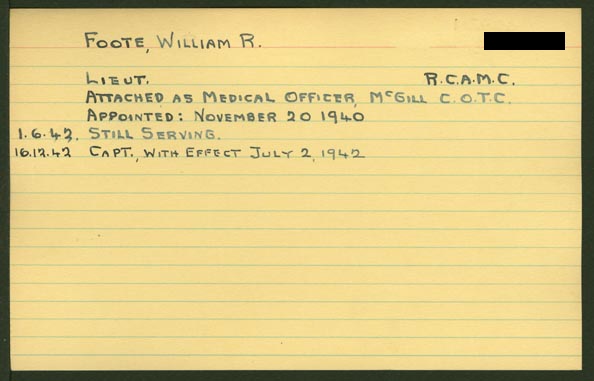 FOOTE, WILLIAM R.
LIEUT. R.C.A.M.C.
ATTACHED AS MEDICAL OFFICER, McGILL C.O.T.C.
APPOINTED: NOVEMBER 20 1940
1.6.42. STILL SERVING.
16.12.42 CAPT., WITH EFFECT JULY 2, 1942